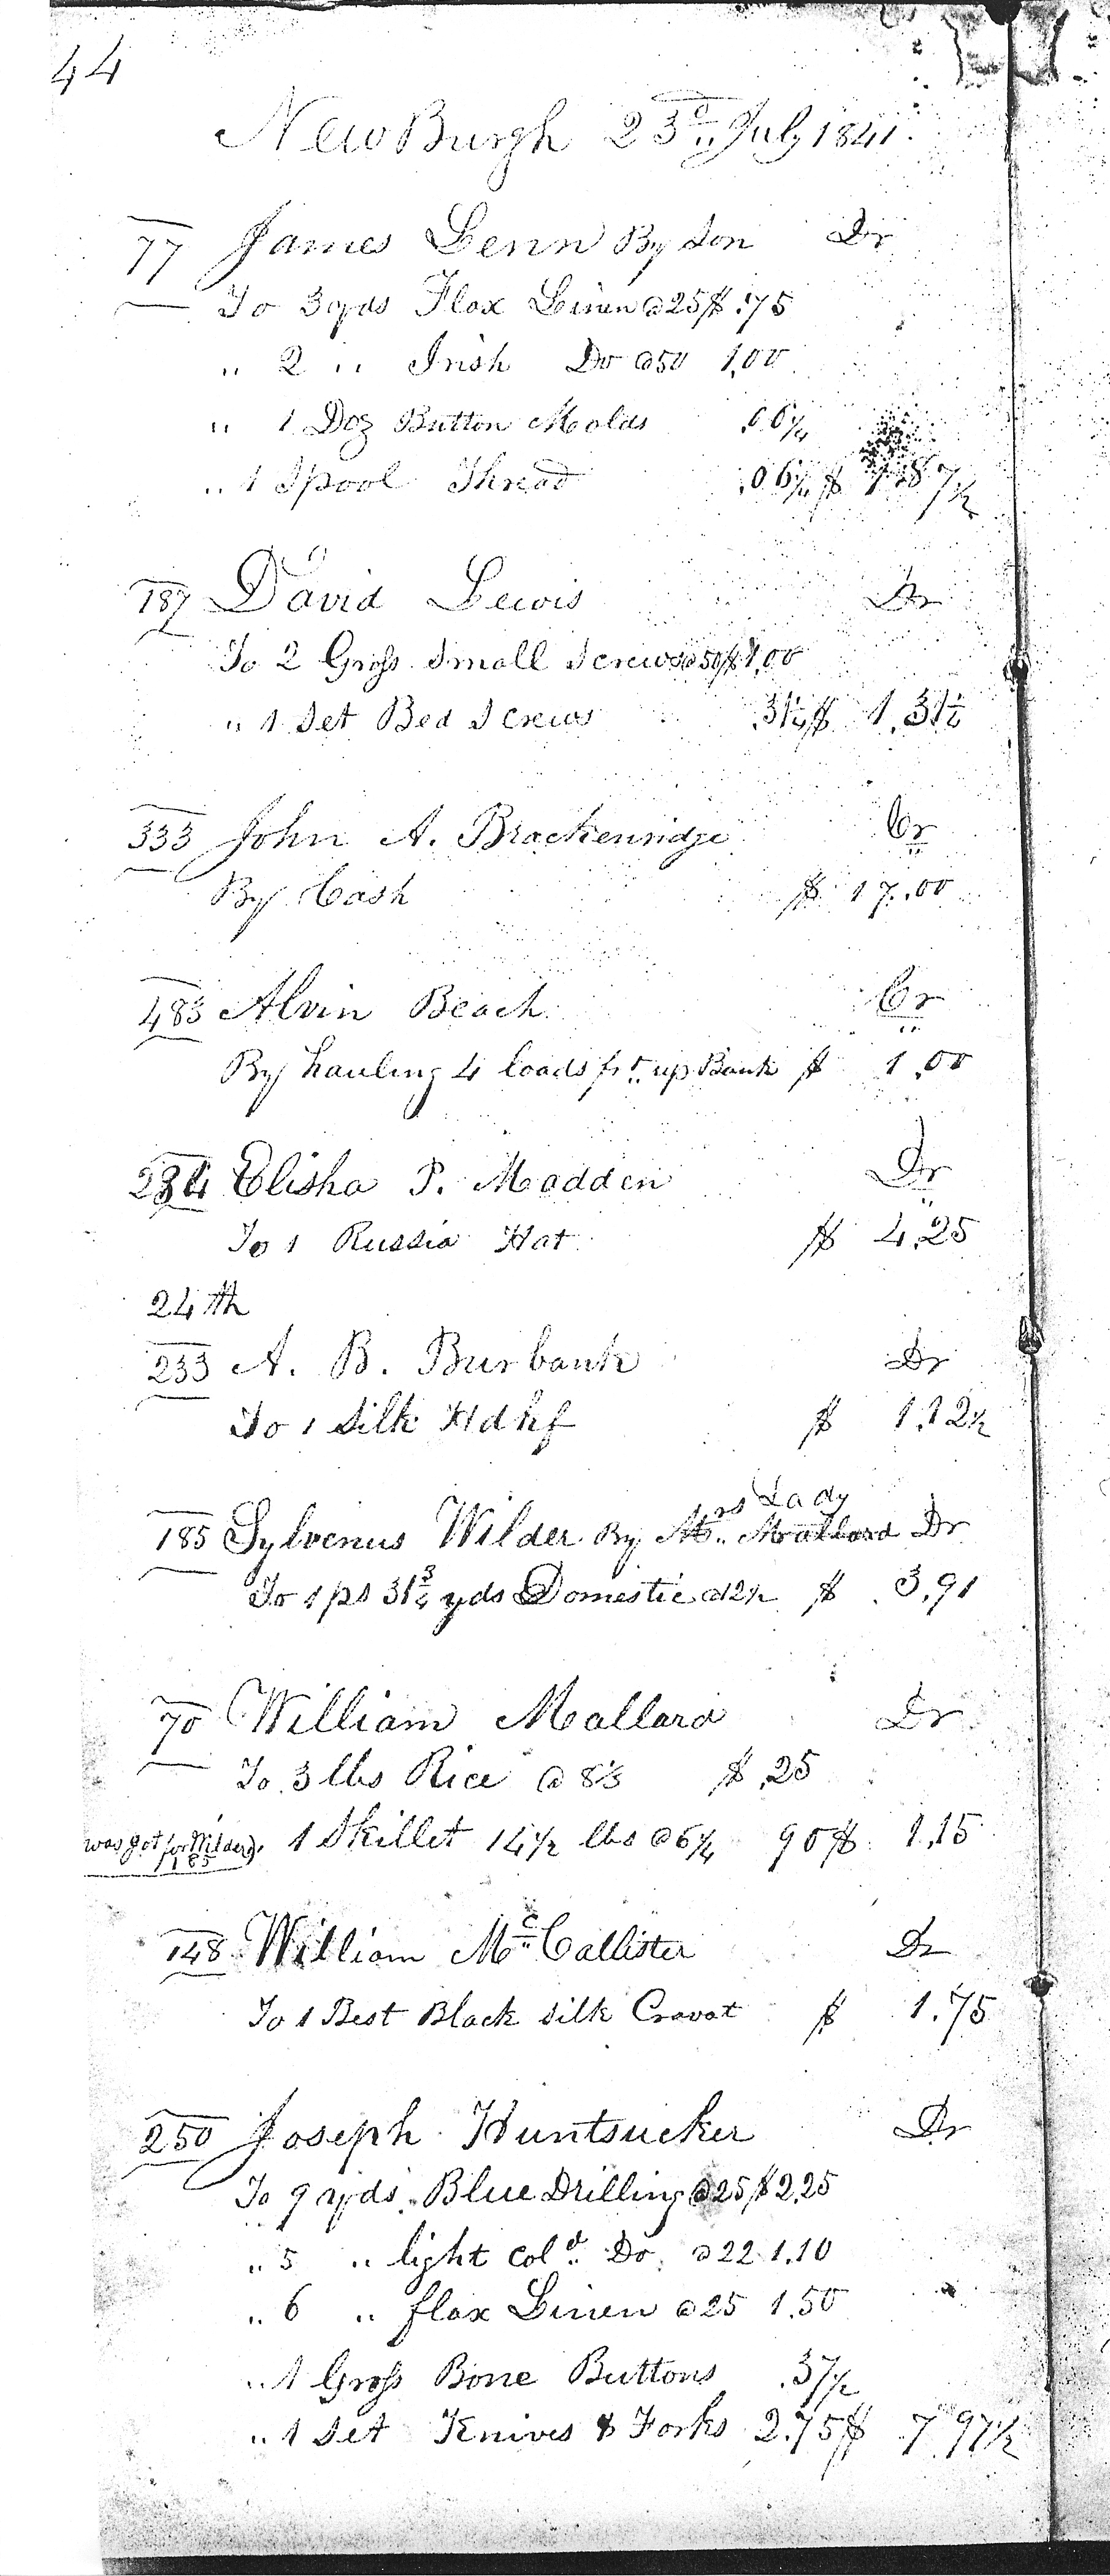 44
NewBurgh 23d July 1841
77 James Lenn By Son Dr
To 3 yds Flax Linen @25 $ .75
" 2 " Irish Do @50 1,00
" 1 Doz Button Molds .06¼
" 1 Spool Thread .06¼ $ 1.87½
187 David Lewis Dr
To 2 Gross Small Screws @50 $ 1,00
" 1 Set Bed Screws .31¼ $ 1.31¼
333 John A. Brackenridge Cr
By Cash $ 17.00
483 Alvin Beach Cr
By hauling 4 loads frt up Bank $ 1.00
234 Elisha P. Madden Dr
To 1 Russia Hat $ 4.25
24th
233 A. B. Burbank Dr
To 1 Silk Hdkf $ 1.12½
Lady
185 Sylvenus Wilder By Mrs Mallard Dr
To 1 ps 31¾ yds Domestic @12½ $ 3.91
70 William Mallard Dr
To 3 lbs Rice @ 8⅓ $ .25
was got for Wilder 185 " 1 Skillet 14½ lbs @6¼ 90 $ 1.15
148 William McCallister Dr
To 1 Best Black Silk Cravat $ 1.75
250 Joseph Huntsucker Dr
To 9 yds Blue Drilling @25 $ 2.25
" 5 " light cold Do @22 1.10
" 6 " flax Linen @25 1.50
" 1 Gross Bone Buttons .37½
" 1 Set Knives & Forks 2.75 $ 7.97½